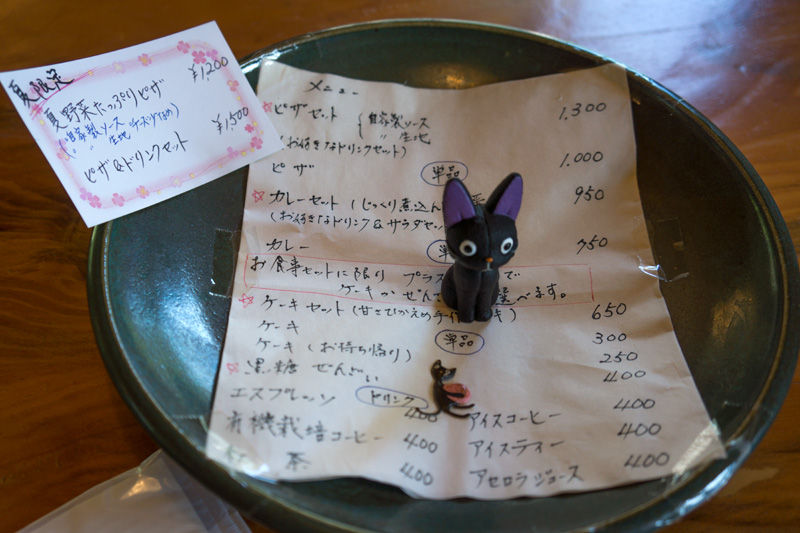 夏限定
夏野菜たっぷりピザ ¥1,200
(自家製ソース
〃 生地
ピザ&ドリンクセット ¥1,500
メニュー
☆ピザセット {自家製ソース 1,300
〃 生地
(お好きなドリンクセット)
ピザ 単品 1,000
☆カレーセット (じっくり煮込ん 950
(お好きなドリンク&サラダセッ
カレー 単 750
お食事セットに限り プラス で
ケーキか ぜんざ 選べます。
☆ケーキセット (甘さひかえめ手作 キ) 650
ケーキ 単品 300
ケーキ (お持ち帰り) 250
☆黒糖 ぜんざい 400
ドリンク
エスプレッソ 400 アイスコーヒー 400
有機栽培コーヒー 400 アイスティー 400
紅茶 400 アセロラジュース 400